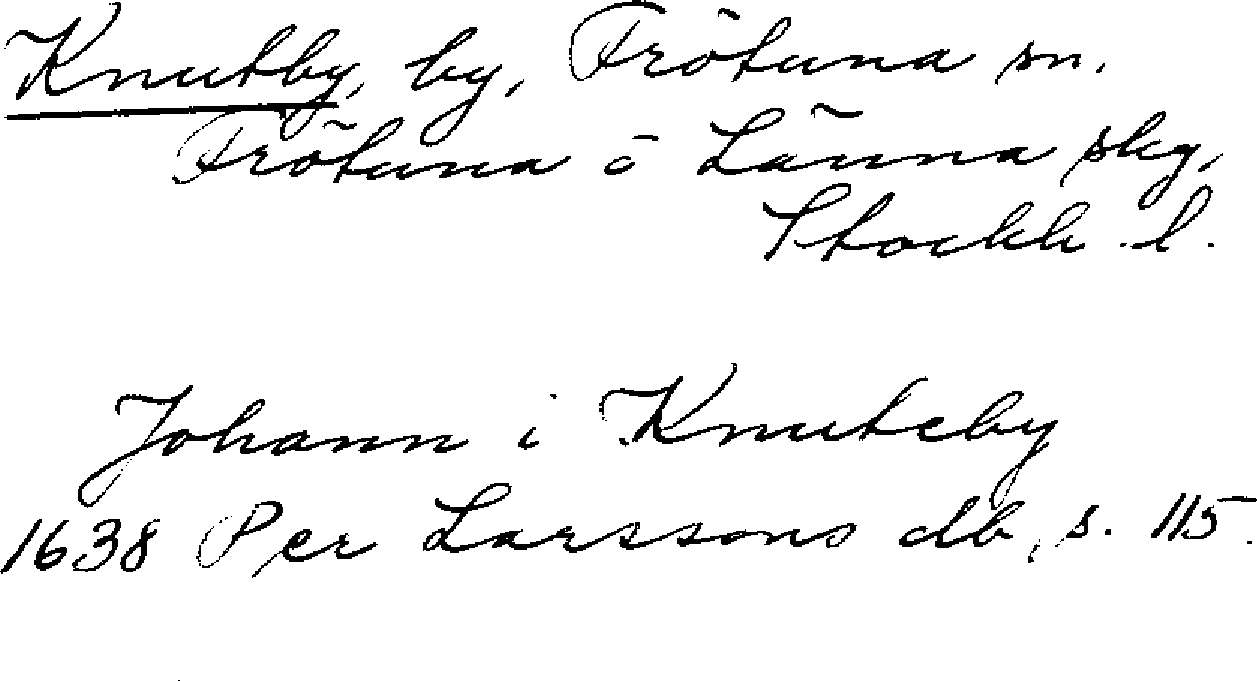 Knutby, by, Frötuna sn.
Frötuna o Länna skg,
Stockh. l.
Johann i Knuteby
1638 Per Larssons db, s. 115.